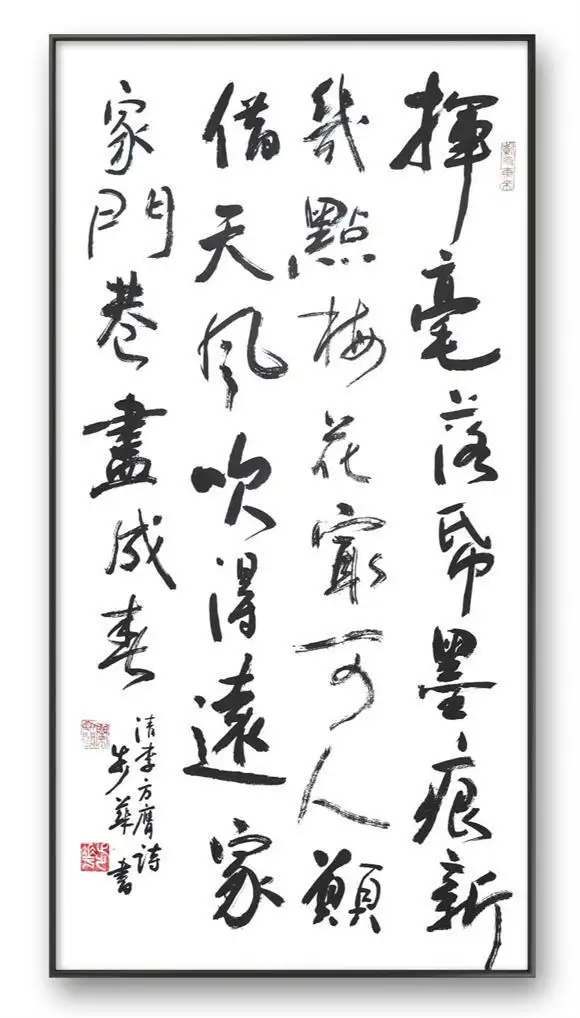 揮毫落帋墨痕新
幾點梅花㝡可人願
借天風吹得遠家
家門巷盡成春
清李方膺詩
步華書